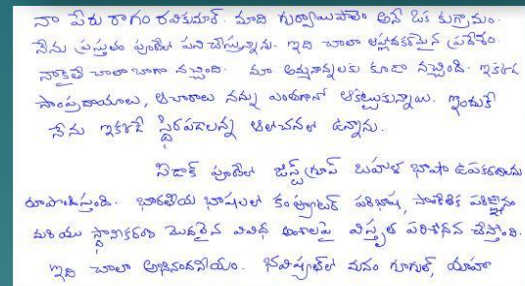 నా పేరు రాగం రవికుమార్. మాది గుర్వాయిపాలెం అనే ఒక కుగ్రామం.
నేను ప్రస్తుతం పూణేలో పని చేస్తున్నాను. ఇది చాలా ఆహ్లాదకరమైన ప్రదేశం
నాకైతే చాలా బాగా నచ్చింది. మా అమ్మనాన్నలకు కూడా నచ్చింది. ఇక్కడి
సాంప్రదాయాలు, ఆచారాలు నన్ను ఎంతగానో ఆకట్టుకున్నాయి. అందుకే
నేను ఇక్కడే స్థిరపడాలన్న ఆలోచనలో ఉన్నాను.
సిడాక్ పూణేలో జిస్ట్ గ్రూప్ బహుళ భాషా ఉపకరణాలు
రూపొందిస్తుంది. భారతీయ భాషలలో కంప్యూటర్ పరిభాష, సాంకేతిక పరిజ్ఞానం
మరియు స్థానికీకరణ మొదలైన వివిధ అంశాలపై విస్తృత పరిశోధన చేస్తోంది.
ఇది చాలా అభినందనీయం. భవిష్యత్‌లో మనం గూగుల్, యాహూ